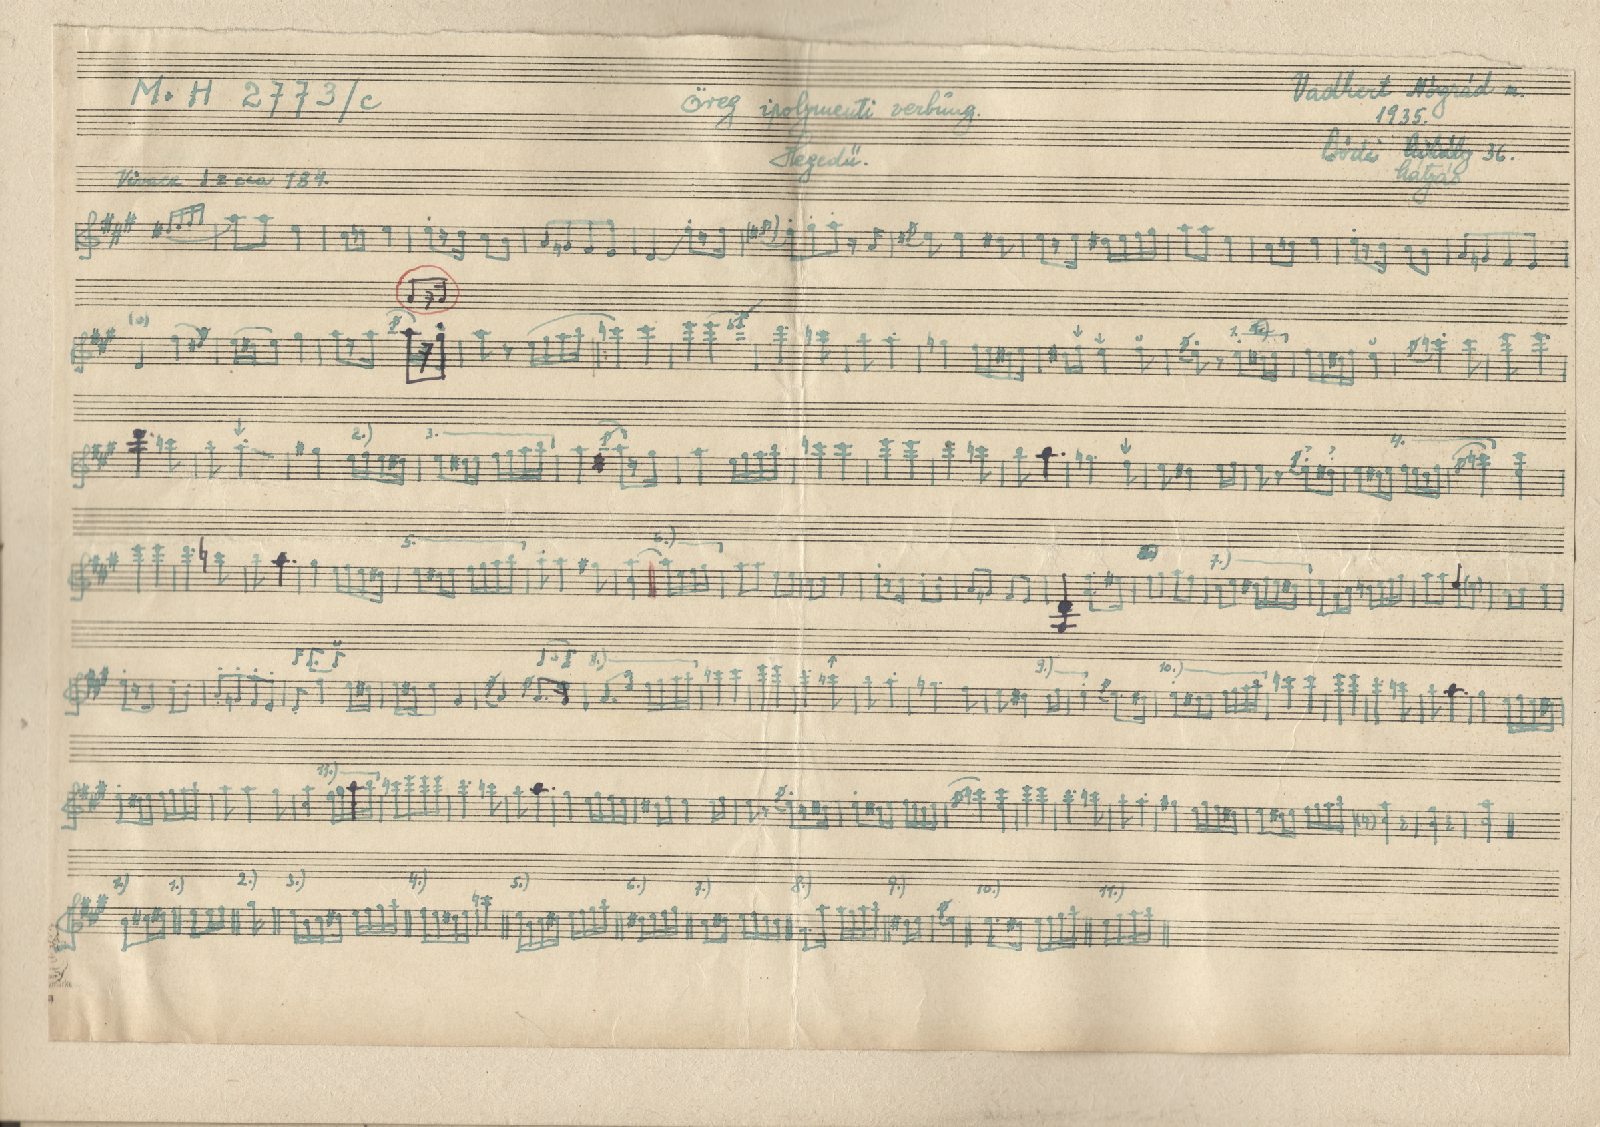 M. H 2773/c
Öreg ipolymenti verbung.
Hegedű.
Vadkert Nógrád m.
1935.
Bódi Mihály 36.
Vivace ♩ = cca 184.
1.
2.)
3.
4.
5.
6.)
7.)
8.)
9.)
10.)
11.)
1.) 1.) 2.) 3.) 4.) 5.) 6.) 7.) 8.) 9.) 10.) 11.)